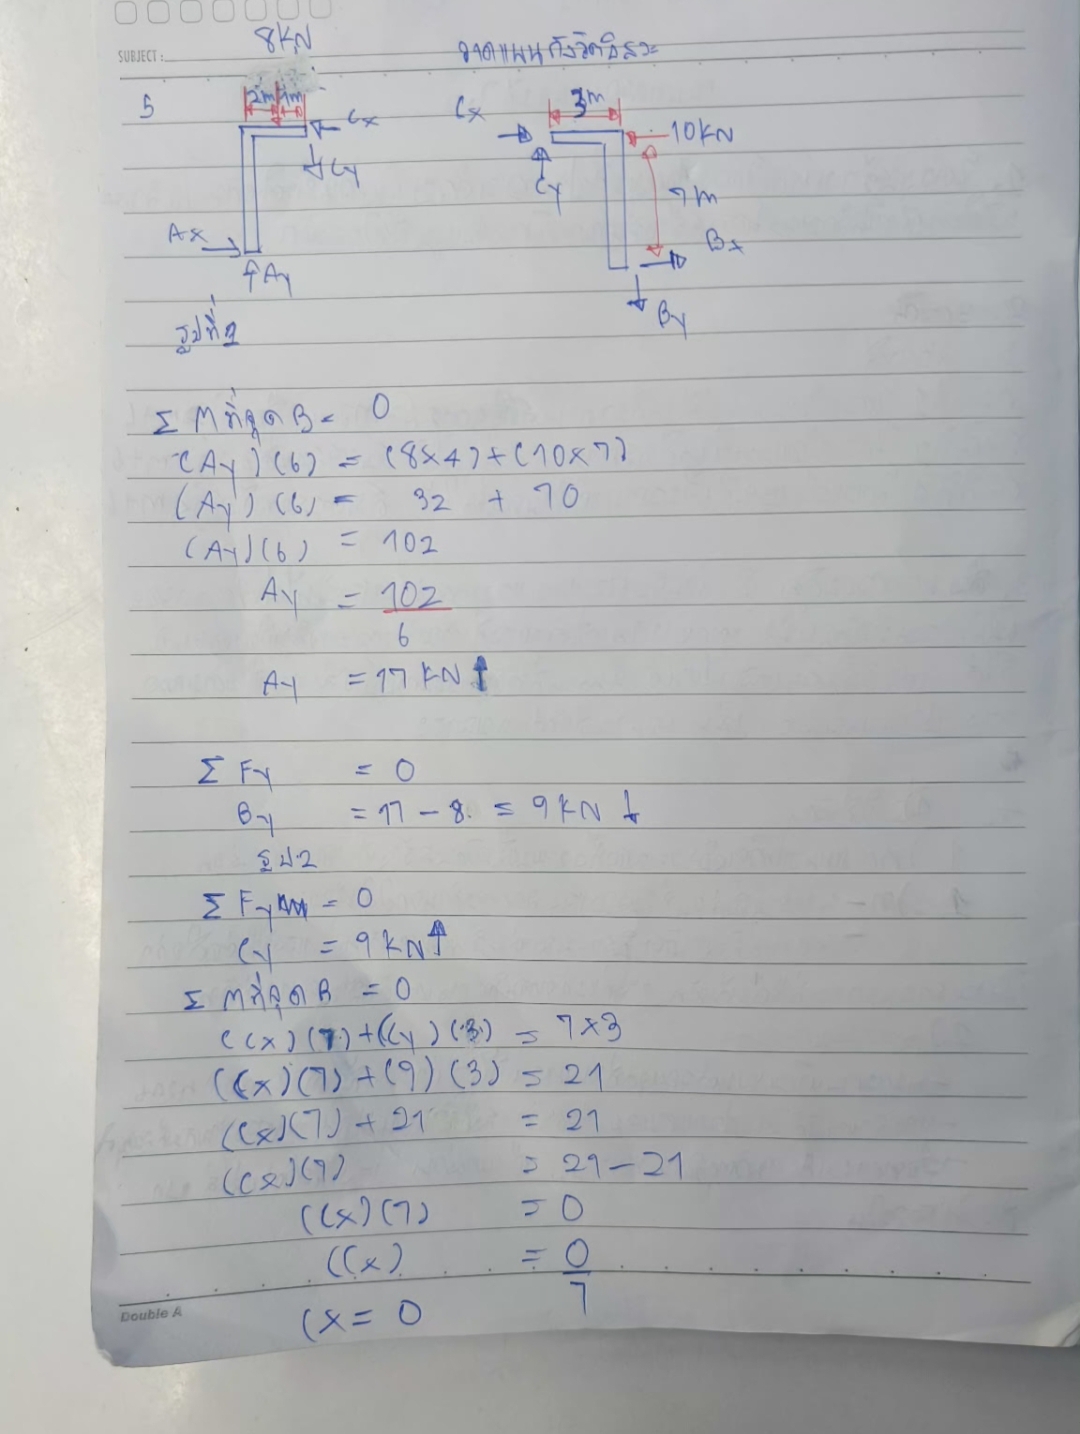 SUBJECT :
8KN
วาดแผนผังวัตถุอิสระ
5
2m 1m
Cx
Cy
Ax
Ay
Cx
3m
10KN
Cy
7m
Bx
By
รูปที่ 1
Σ M ที่จุด B = 0
(Ay)(6) = (8x4)+(10x7)
(Ay)(6) = 32 + 70
(Ay)(6) = 102
Ay = 102
6
Ay = 17 KN ↑
Σ Fy = 0
By = 17 - 8 = 9 KN ↓
รูป 2
Σ Fy = 0
Cy = 9 KN ↑
Σ M ที่จุด B = 0
(Cx)(7)+(Cy)(3) = 7x3
(Cx)(7)+(9)(3) = 21
(Cx)(7)+21 = 21
(Cx)(7) = 21-21
(Cx)(7) = 0
(Cx) = 0
7
Cx = 0
Double A